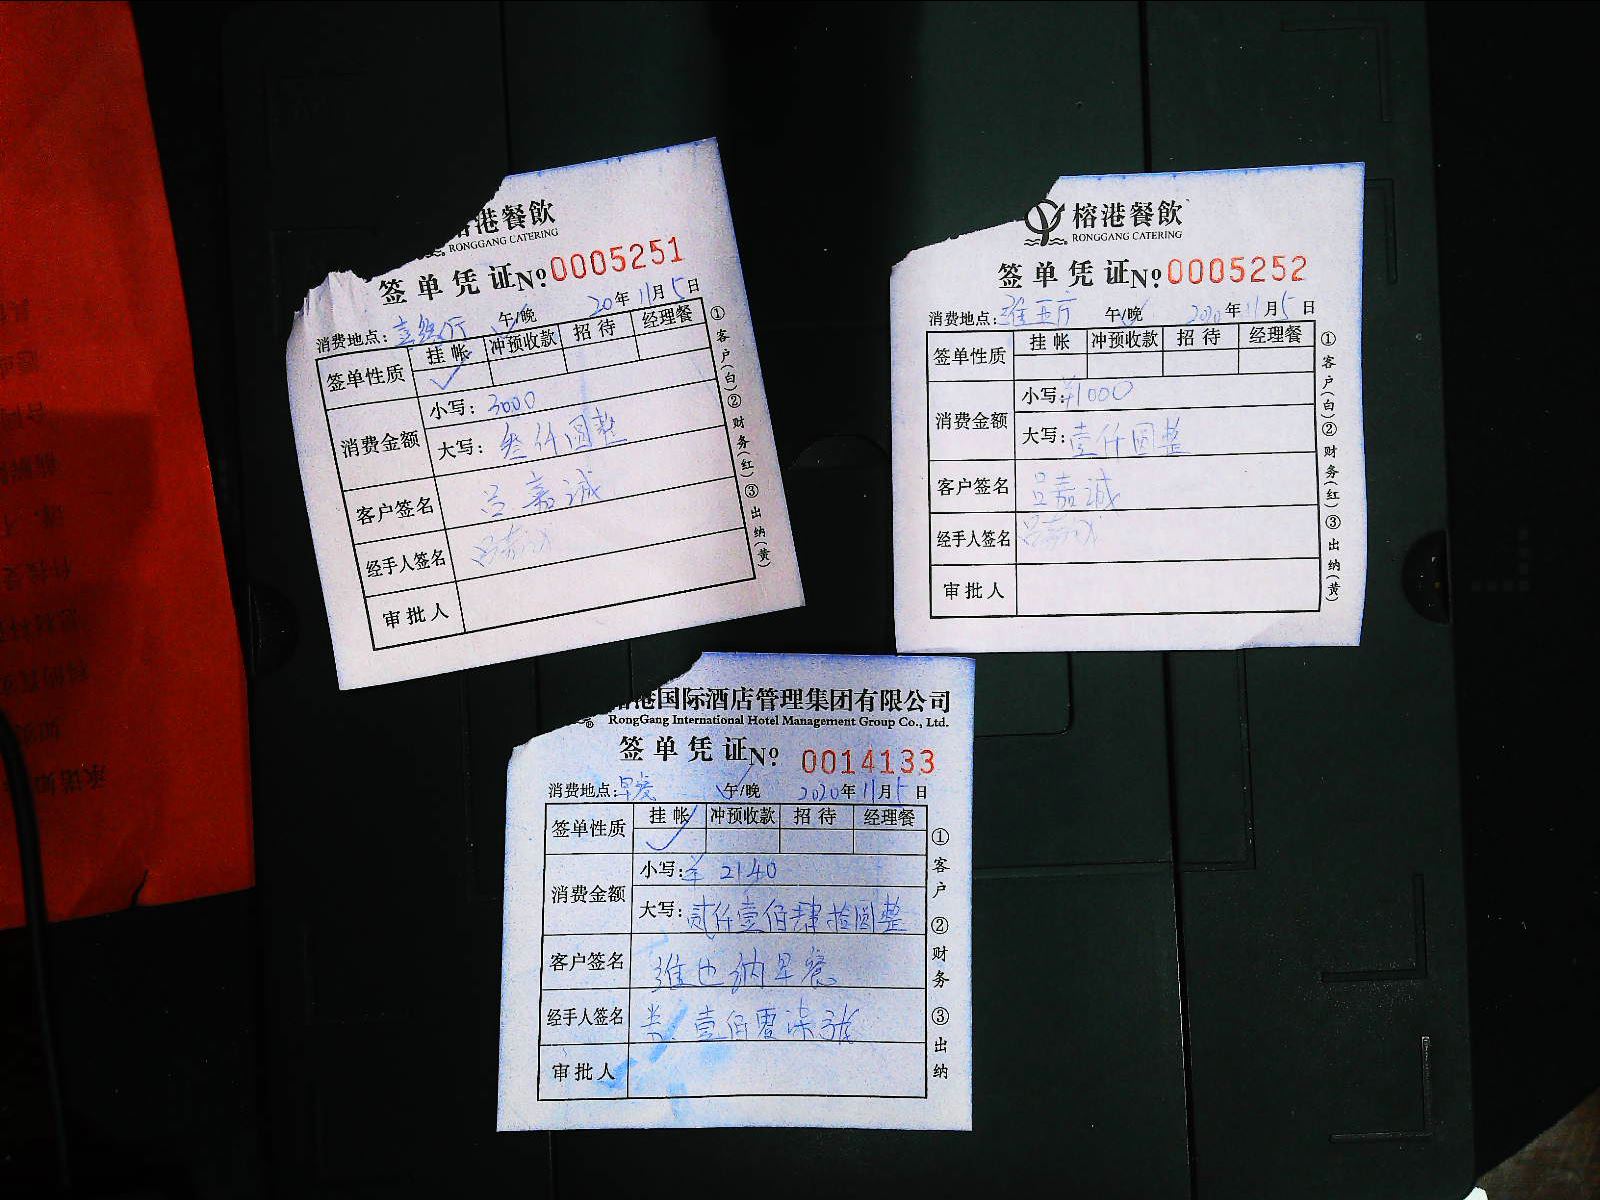 港餐飲
RONGGANG CATERING
签单凭证№0005251
消费地点: 午/晚 20年11月5日
签单性质 挂帐 冲预收款 招待 经理餐
消费金额 小写: 3000
大写: 叁仟圆整
客户签名 吕嘉诚
经手人签名 吕嘉诚
审批人
①客户(白)②财务(红)③出纳(黄)
榕港餐飲
RONGGANG CATERING
签单凭证№0005252
消费地点: 午/晚 2020年11月5日
签单性质 挂帐 冲预收款 招待 经理餐
消费金额 小写: ¥1000
大写: 壹仟圆整
客户签名 吕嘉诚
经手人签名 吕嘉诚
审批人
①客户(白)②财务(红)③出纳(黄)
港国际酒店管理集团有限公司
RongGang International Hotel Management Group Co., Ltd.
签单凭证№ 0014133
消费地点: 早餐 午/晚 2020年11月5日
签单性质 挂帐 冲预收款 招待 经理餐
消费金额 小写: ¥ 2140
大写: 贰仟壹佰肆拾圆整
客户签名 维也纳早餐
经手人签名 共 壹佰零柒
审批人
①客户 ②财务 ③出纳